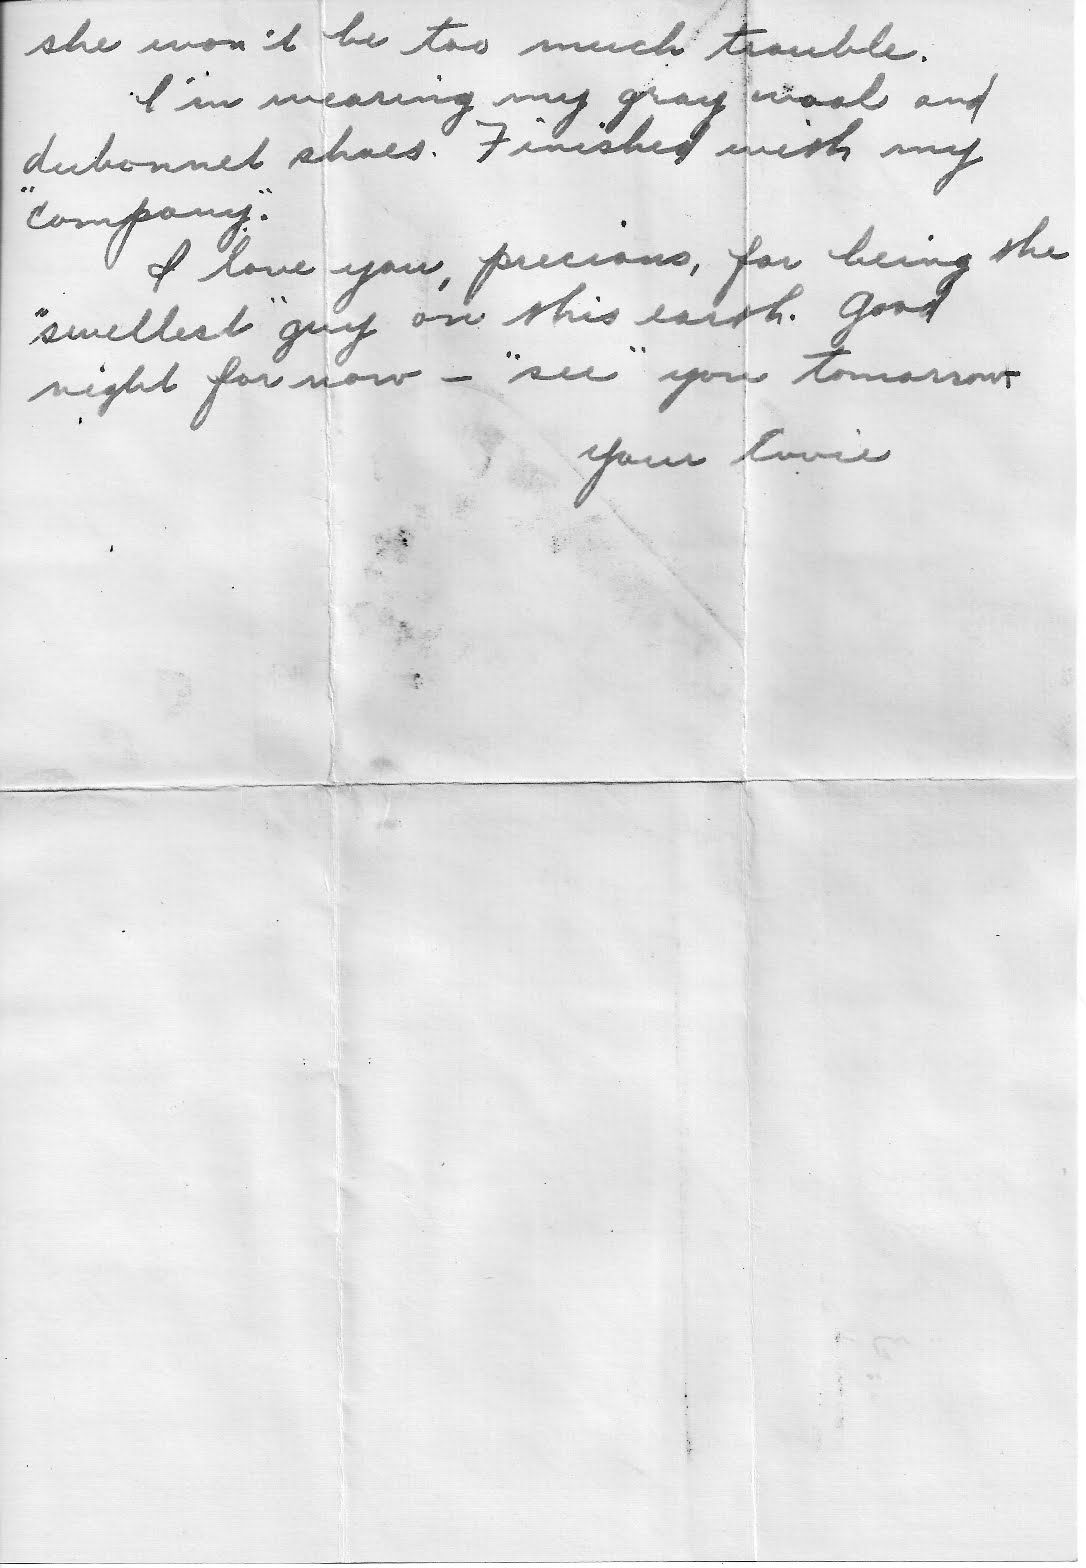 she won't be too much trouble.
I'm wearing my gray wool and
dubonnet shoes. Finished with my
"company".
I love you, precious, for being the
"swellest" guy on this earth. Good
night for now – "see" you tomorrow
Your